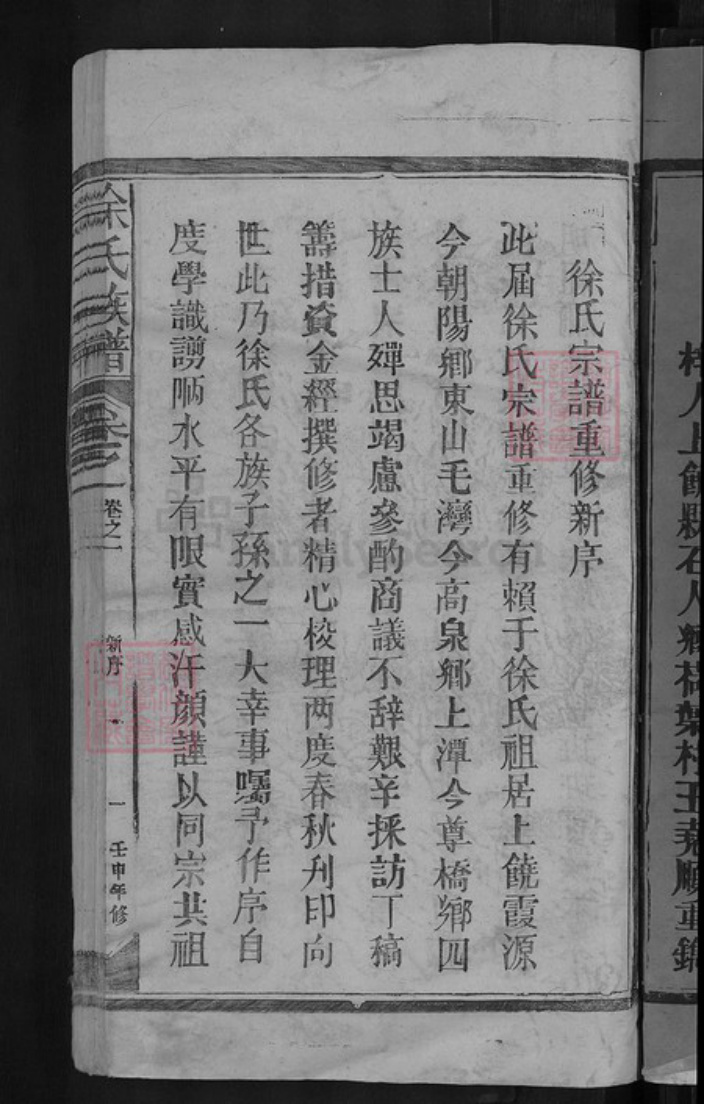 梓人上饒縣石人鄉
重鐫
徐氏宗譜重修新序
此屆徐氏宗譜重修有賴于徐氏祖居上饒霞源
今朝陽鄉東山毛灣今高泉鄉上潭今尊橋鄉四
族士人殫思竭慮參酌商議不辞艱辛採訪丁稿
籌措資金經撰修者精心校理两度春秋刋印向
世此乃徐氏各族子孫之一大幸事囑予作序自
度學識謭陋水平有限實感汗顏謹以同宗共祖
徐氏族譜
卷之一
卷之一
新序
一
壬申年修
FamilySearch